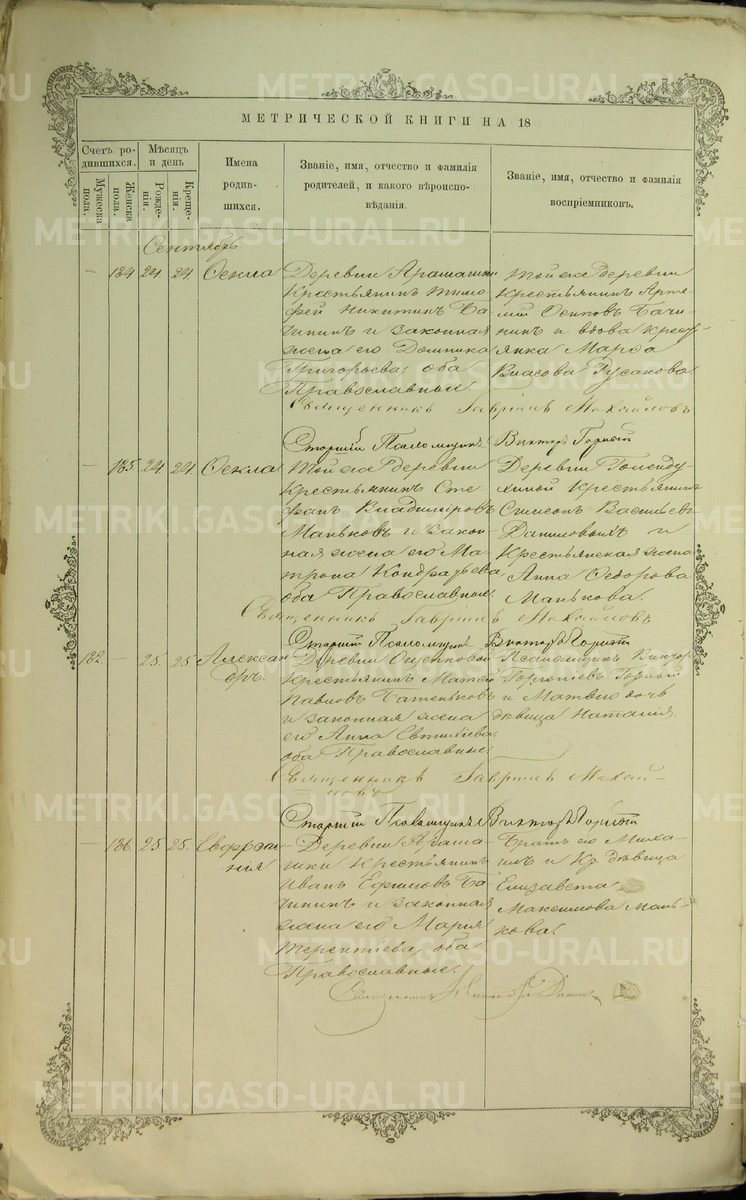 МЕТРИЧЕСКОЙ КНИГИ НА 18
Счетъ родившихся.
Мужеска пола.
Женска пола.
Мѣсяцъ и день
Рожденія.
Крещенія.
Имена родившихся.
Званіе, имя, отчество и фамилія родителей, и какого вѣроисповѣданія.
Званіе, имя, отчество и фамилія воспріемниковъ.
Сентябрь
— 184 24. 24. Ѳекла
Деревни Арамашки
Крестьянинъ Тимо-
фей Никитинъ Ба-
чининъ и законная
жена его Домника
Григорьева, оба
Православные.
Той же деревни
Крестьянинъ Арте-
мій Осиповъ Бачи-
нинъ и вдова крест-
янка Марѳа
Власова Русакова
Священникъ Гавріилъ Михайловъ
Старшій Псаломщикъ Викторъ Горный
— 185. 24. 24. Ѳекла
Той же деревни
Крестьянинъ Сте-
фанъ Владиміровъ
Маньковъ и закон-
ная жена его Ма-
трона Кондратьева
оба Православные.
Деревни Голенду-
хиной Крестьянинъ
Симеонъ Васильевъ
и
Крестьянская жена
Анна Ѳедорова
Манькова.
Священникъ Гавріилъ Михайловъ
Старшій Псаломщикъ Викторъ Горный
182. — 25. 25. Алексан-
дръ.
Деревни
Крестьянинъ Матѳей
Павловъ Батеньковъ
и законная жена
его Анна
оба Православные.
Псаломщикъ Викторъ
Горный
и дочь
дѣвица Наталія.
Священникъ Гавріилъ Михай-
ловъ
Старшій Псаломщикъ Викторъ Горный
— 186. 25. 25. Евфроси-
нія.
Деревни Арама-
шки Крестьянинъ
Иванъ Ефимовъ Ба-
чининъ и законная
жена его Марія
Терентіева, оба
Православные.
Братъ его Миха-
илъ и Кр. дѣвица
Елизавета
Максимова Мань-
кова.
Священникъ
METRIKI.GASO-URAL.RU